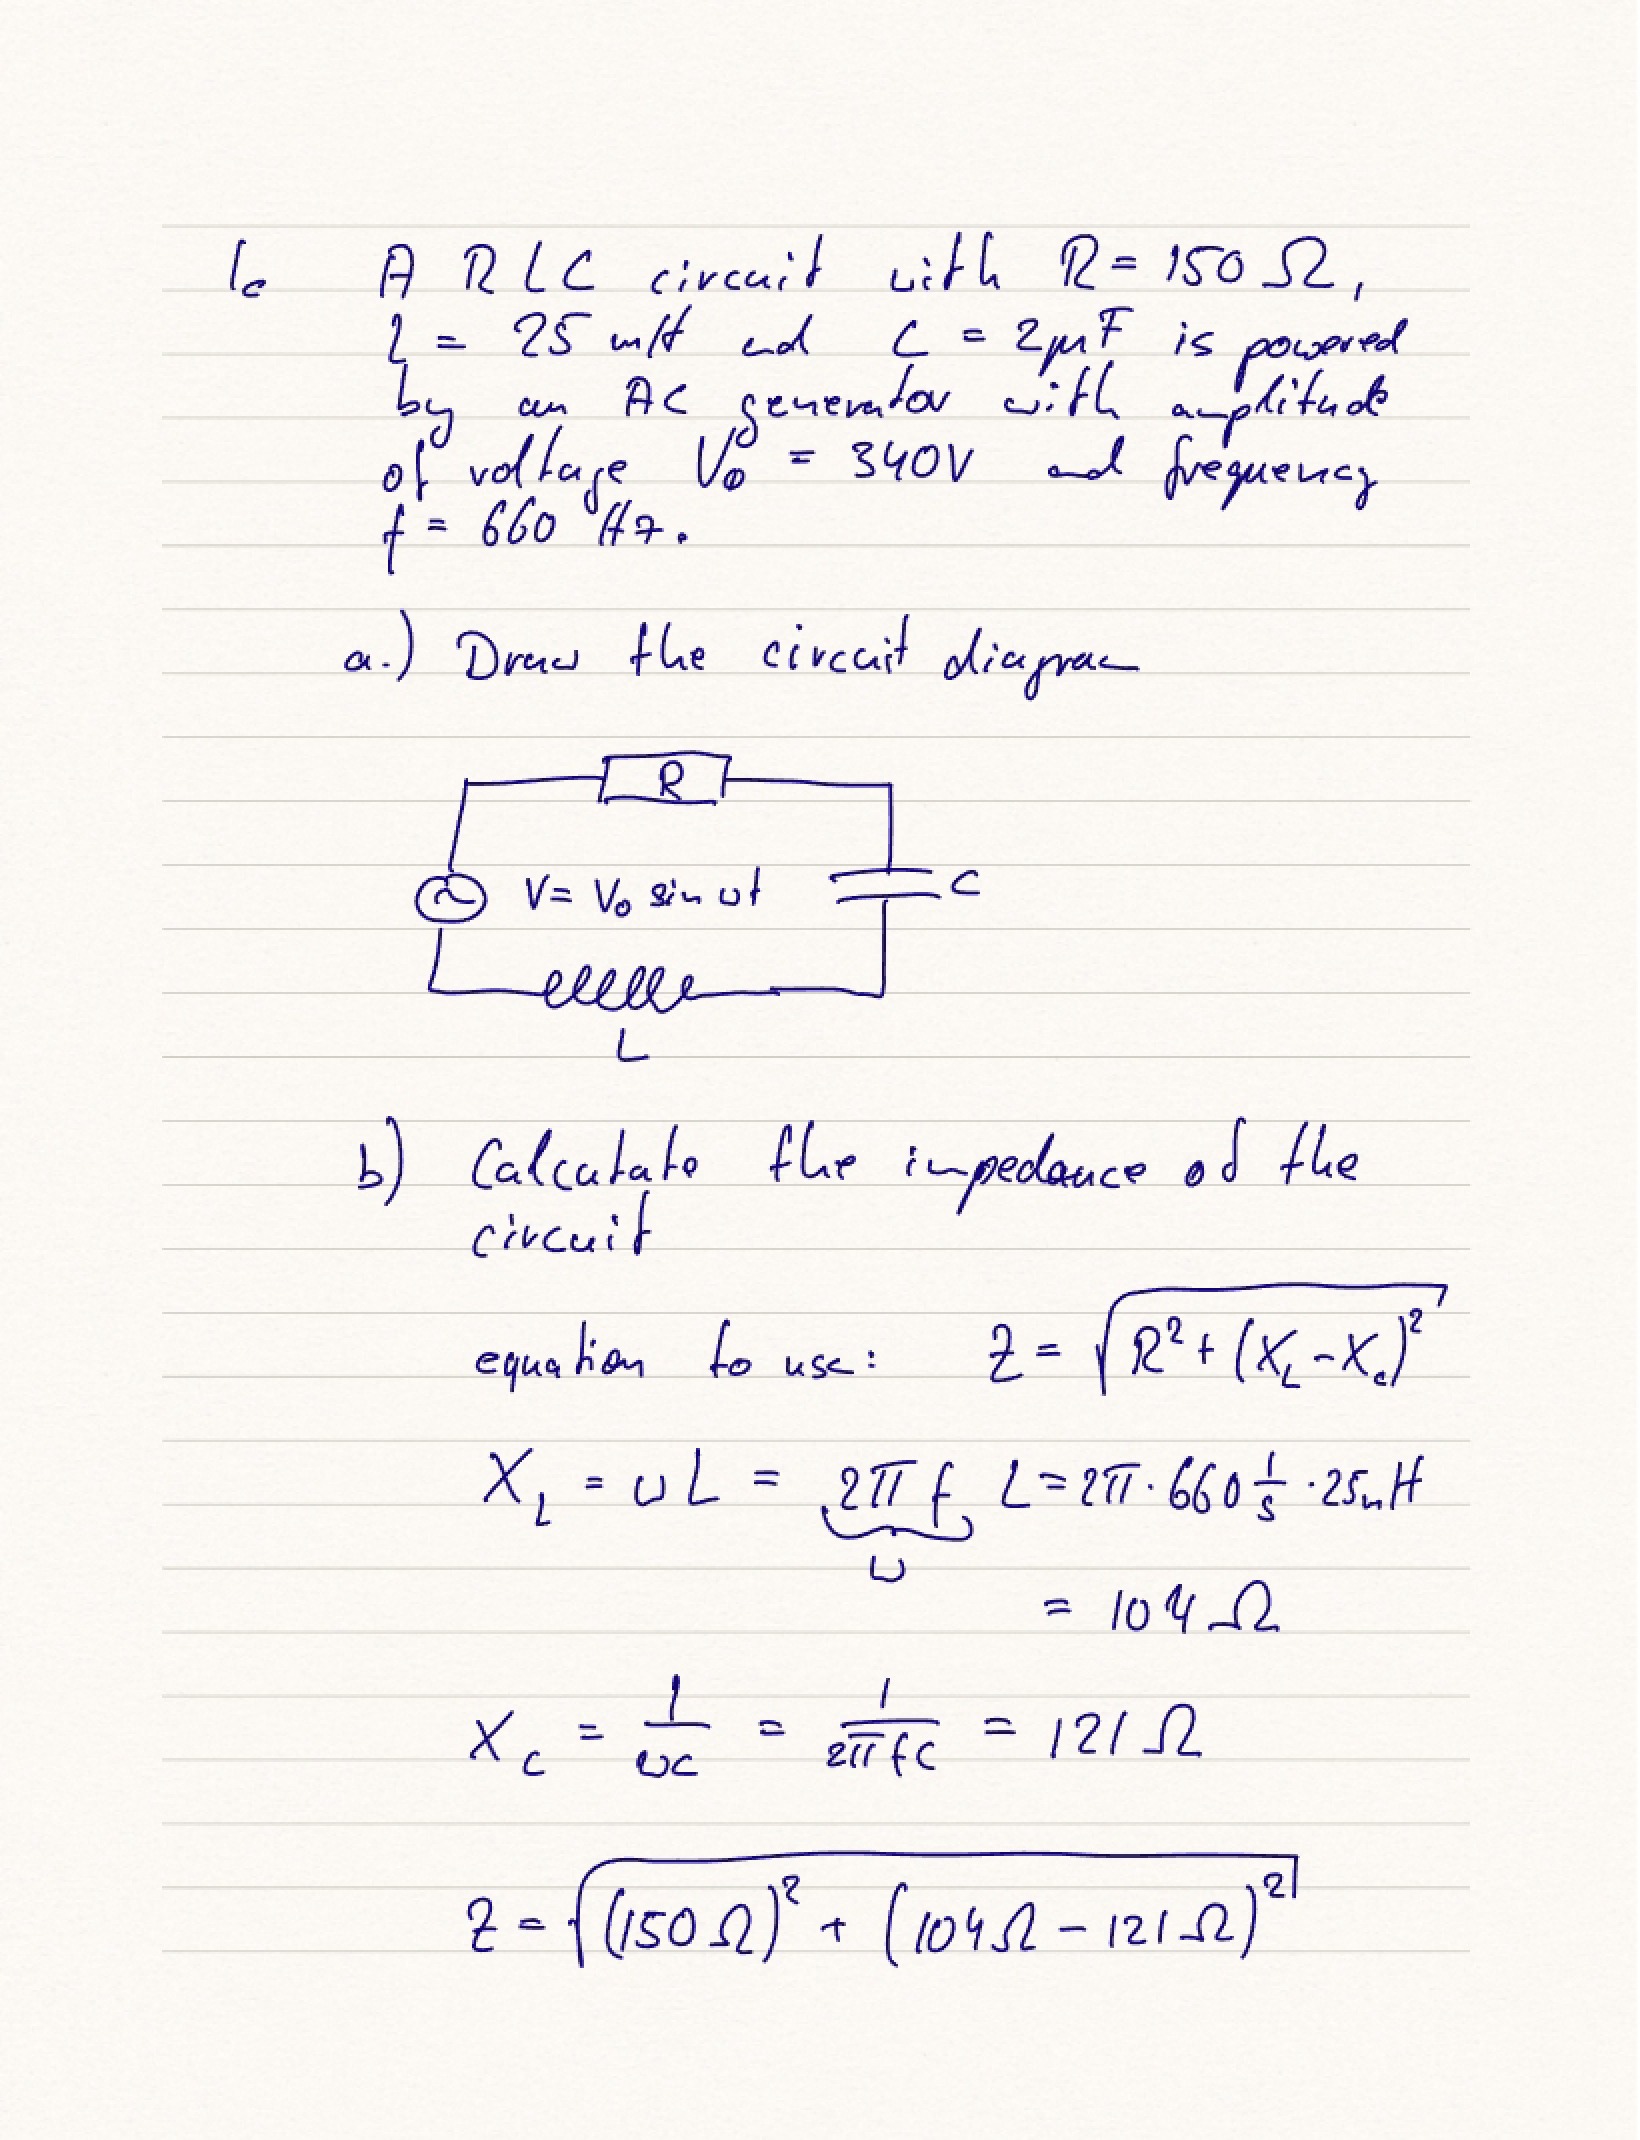 1. A RLC circuit with R = 150 Ω,
L = 25 mH and C = 2μF is powered
by an AC generator with amplitude
of voltage V₀ = 340V and frequency
f = 660 Hz.
a.) Draw the circuit diagram
R
V = V₀ sin ωt
C
L
b) Calculate the impedance of the
circuit
equation to use: Z = √(R² + (X_L - X_C)²)
X_L = ωL = 2πf L = 2π · 660 1/s · 25mH
ω
= 104 Ω
X_C = 1/ωC = 1/2πfC = 121 Ω
Z = √((150 Ω)² + (104Ω - 121Ω)²)